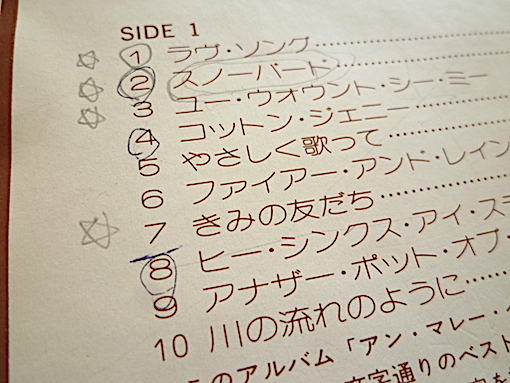 SIDE 1
1 ラヴ・ソング
2 スノーバード
3 ユー・ウォウント・シー・ミー
4 コットン・ジェニー
5 やさしく歌って
6 ファイアー・アンド・レイン
7 きみの友だち
8 ヒー・シンクス・アイ・ス
9 アナザー・ポット・オブ・
10 川の流れのように
のアルバム「アン・マレー・
文字通りのベスト